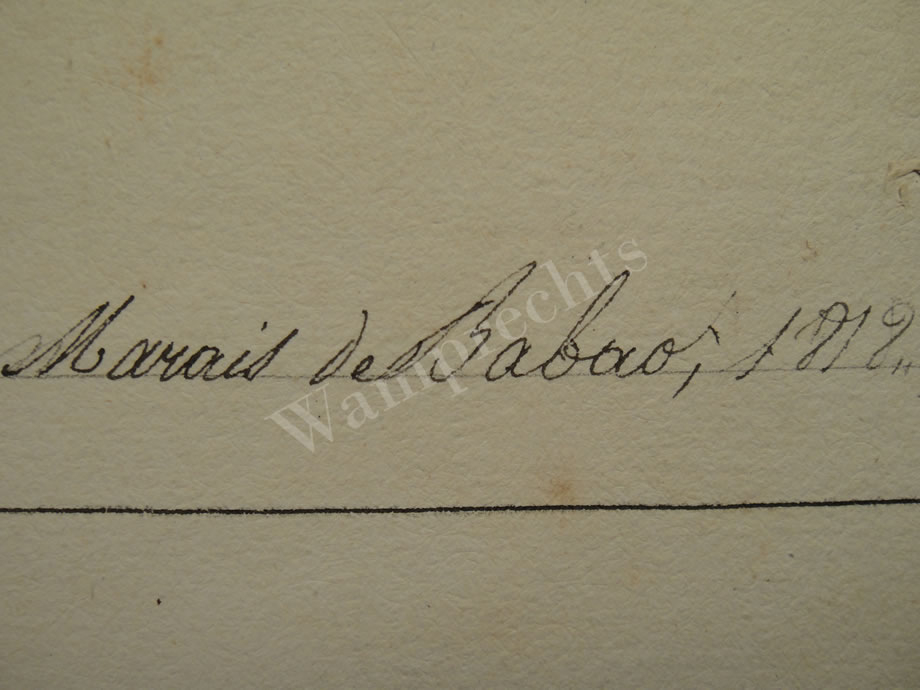 Marais de Babao, 1812„
Wamprechts